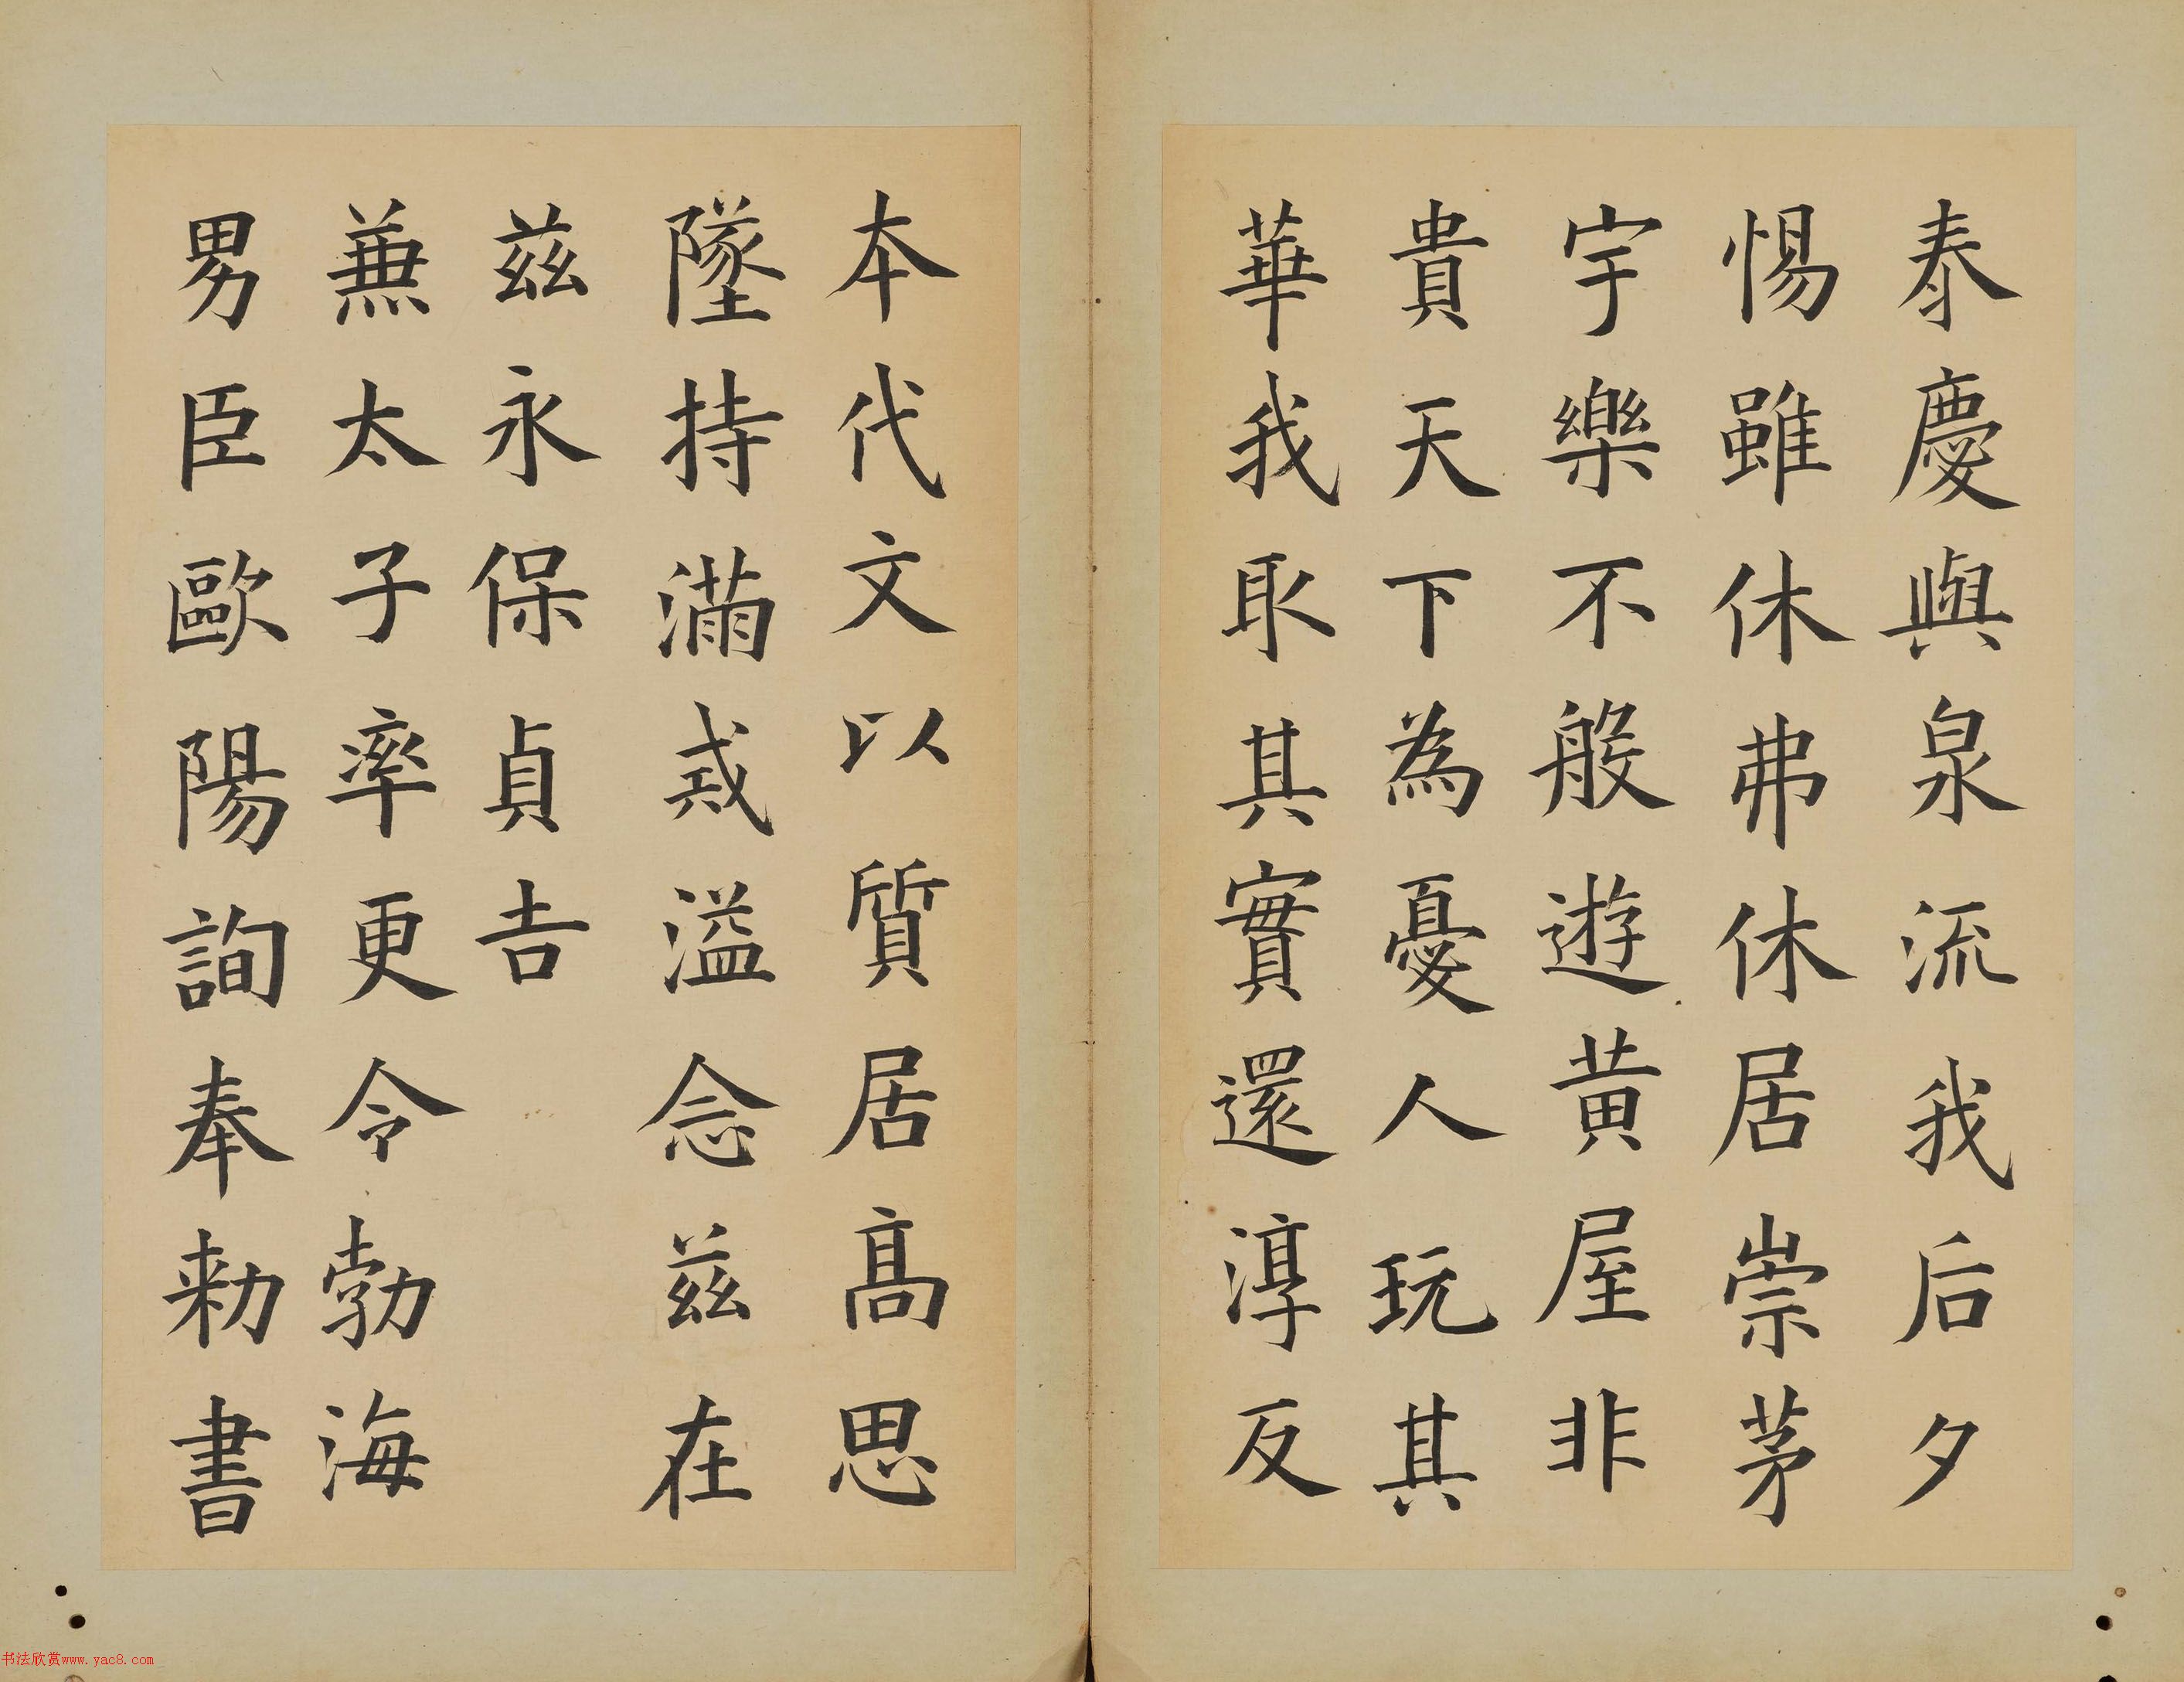 泰慶與泉流我后夕
惕雖休弗休居崇茅
宇樂不般遊黃屋非
貴天下為憂人玩其
華我取其實還淳反
本代文以質居高思
墜持滿戒溢念茲在
茲永保貞吉
兼太子率更令勃海
男臣歐陽詢奉勑書
书法欣赏www.yac8.com